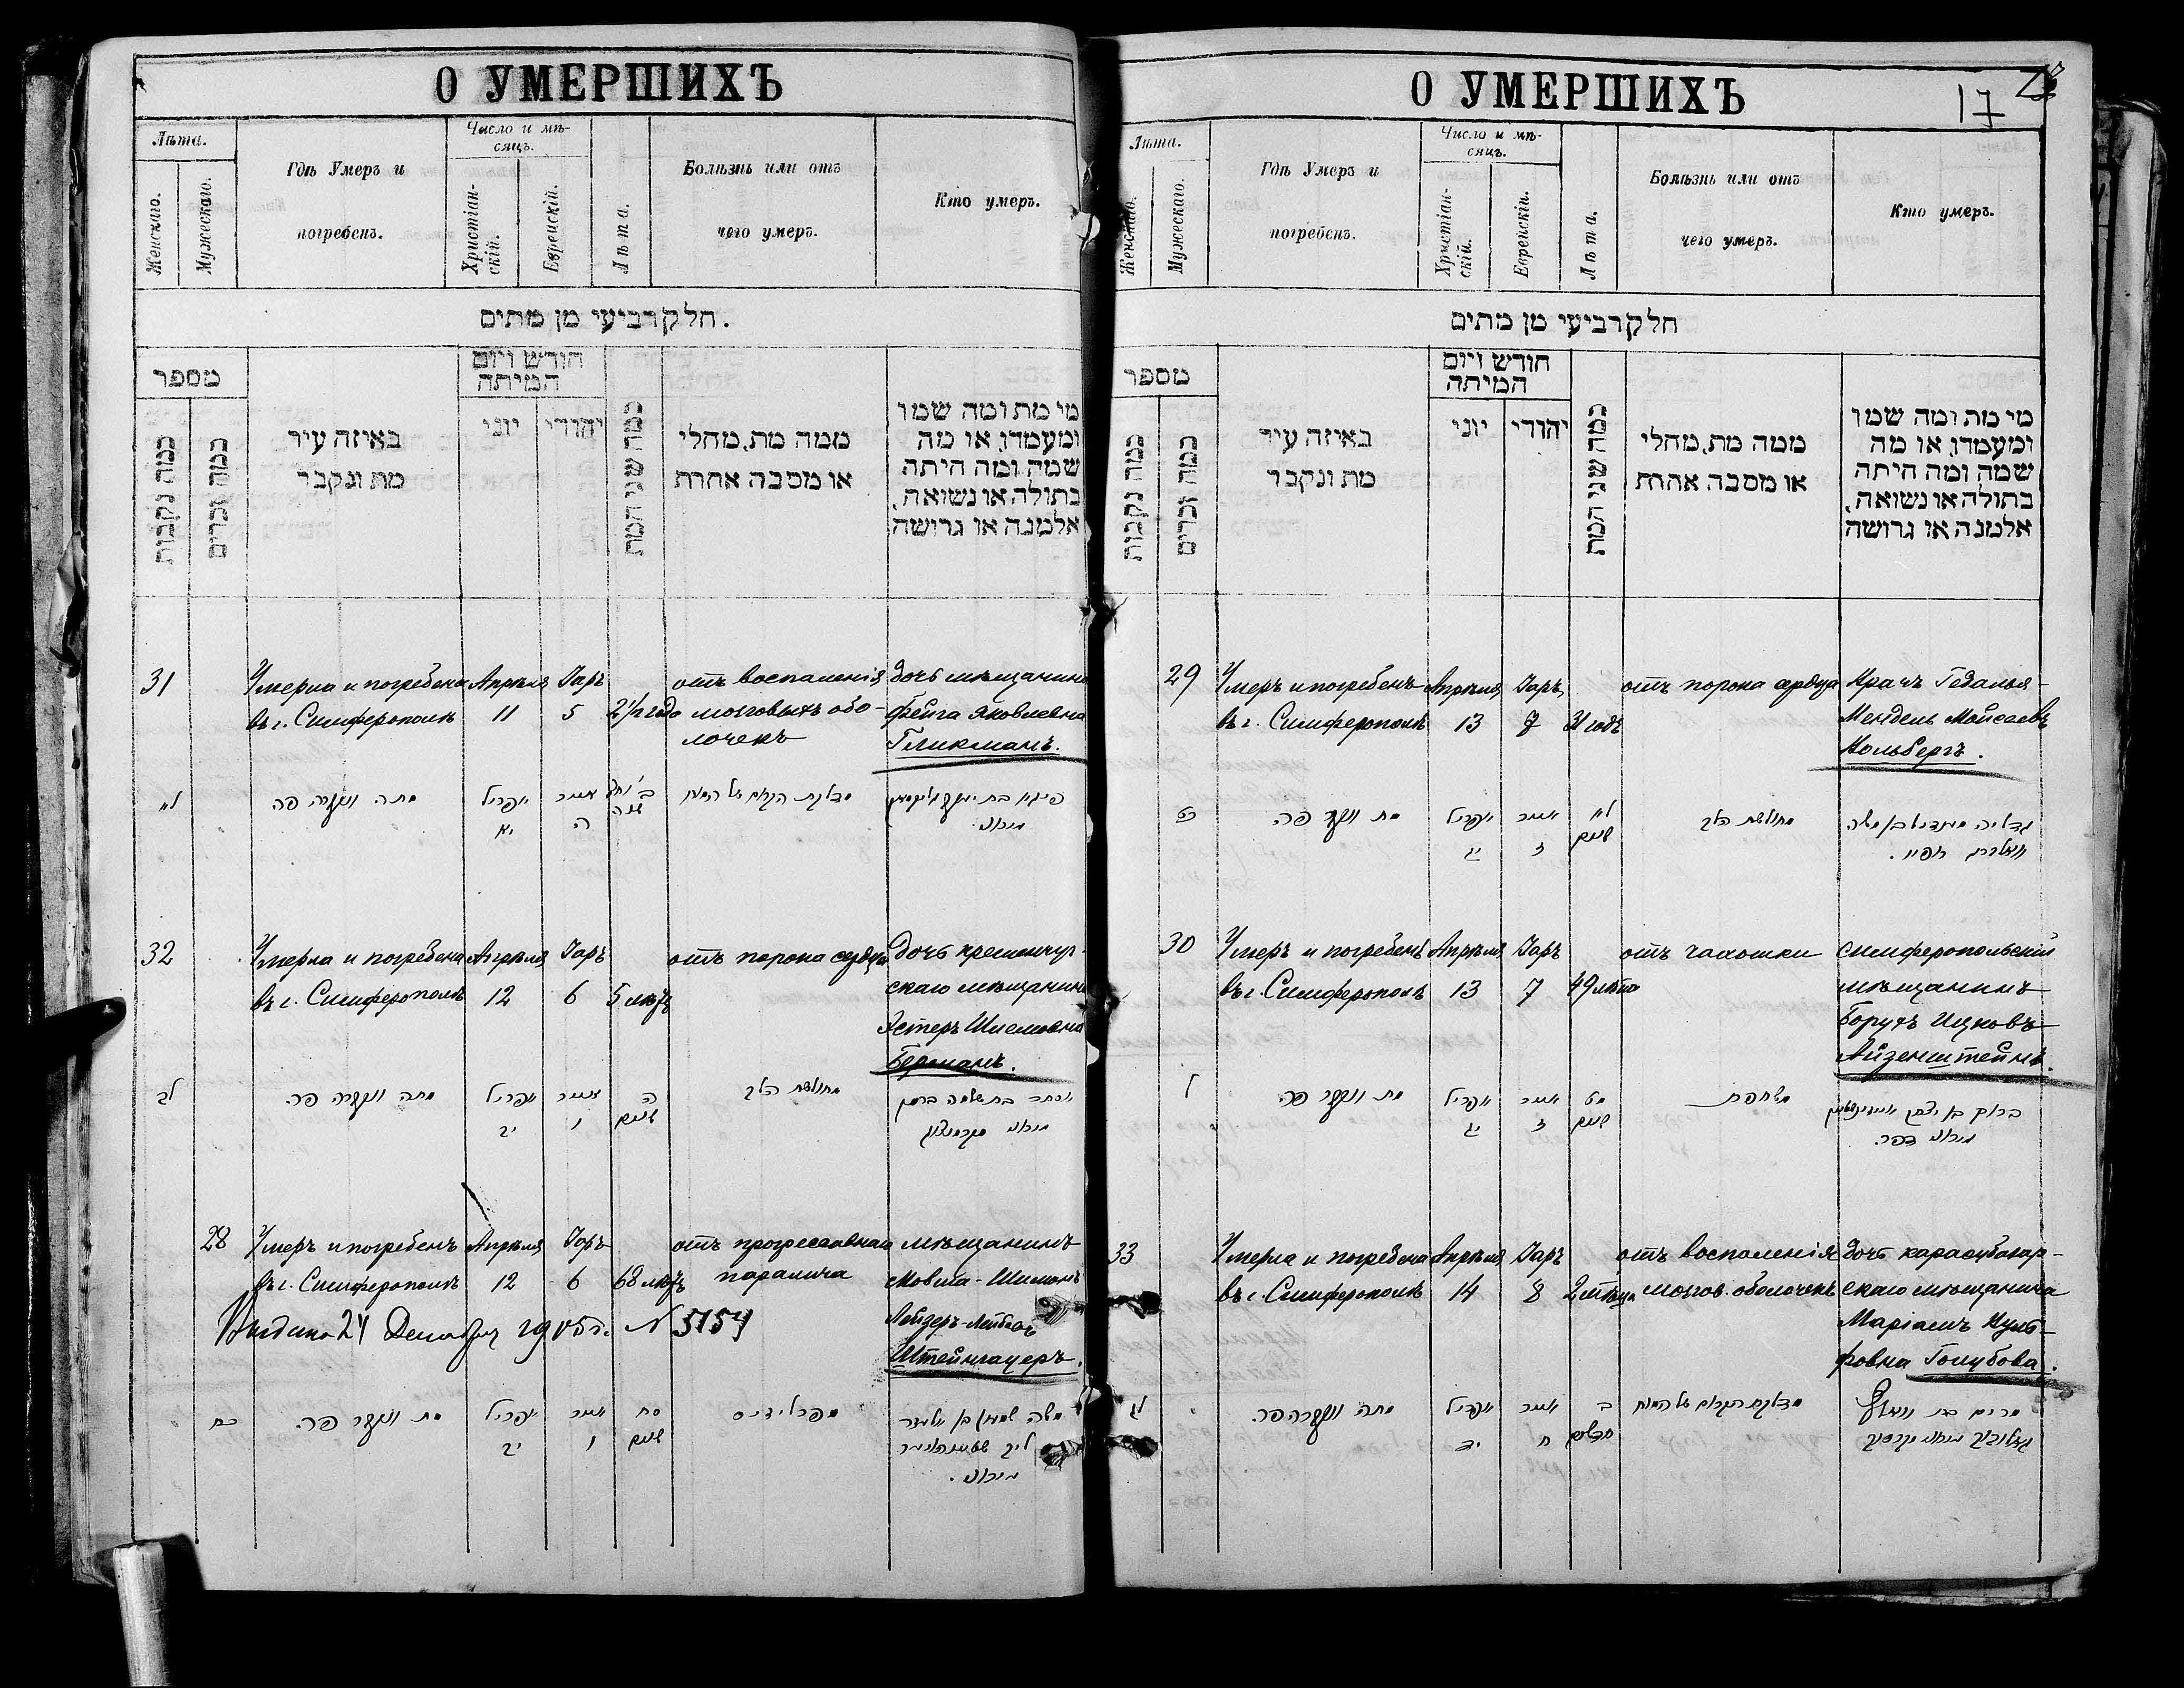 О УМЕРШИХЪ
Лѣта.
Женскаго.
Мужескаго.
Гдѣ Умеръ и
погребенъ.
Число и мѣ-
сяцъ.
Христіан-
скій.
Еврейскій.
Лѣта.
Болѣзнь или отъ
чего умеръ.
Кто умеръ.
חלק רביעי מן מתים.
מספר
כמה נקבות
כמה זכרים
באיזה עיר
מת ונקבר
חודש ויום
המיתה
יוני
יהודי
כמה שני המת
ממה מת, מחלי
או מסבה אחרת
מי מת ומה שמו
ומעמדו, או מה
שמה ומה היתה
בתולה או נשואה,
אלמנה או גרושה
31
Умерла и погребена
въ г. Симферополѣ
Апрѣля
11
Іаръ
5
2½ года
отъ воспаленія
мозговыхъ обо-
лочекъ
дочь мѣщанина
Фейга Яковлевна
Гликманъ.
לא
מתה ונקברה פה
אפריל
יא
אייר
ה
32
Умерла и погребена
въ г. Симферополѣ
Апрѣля
12
Іаръ
6
5 лѣтъ
отъ порока сердца
дочь кременчуг-
скаго мѣщанина
Эстеръ Шлемовна
Берманъ.
לב
מתה ונקברה פה.
אפריל
יב
אייר
ו
ה
שנים
מחולשת הלב
אסתר בת שלמה ברמן
28
Умеръ и погребенъ
въ г. Симферополѣ
Апрѣля
12
Іаръ
6
68 лѣтъ
отъ прогрессивнаго
паралича
мѣщанинъ
Мовша-Шимонъ
Лейзеръ-Лейбовъ
Штейнгауеръ.
Выдано 24 Декабря 1905 г. № 5154
כח
מת ונקבר פה.
אפריל
יב
אייר
ו
סח
שנים
О УМЕРШИХЪ
17
Лѣта.
Женскаго.
Мужескаго.
Гдѣ Умеръ и
погребенъ.
Число и мѣ-
сяцъ.
Христіан-
скій.
Еврейскій.
Лѣта.
Болѣзнь или отъ
чего умеръ.
Кто умеръ.
חלק רביעי מן מתים
מספר
כמה נקבות
כמה זכרים
באיזה עיר
מת ונקבר
חודש ויום
המיתה
יוני
יהודי
כמה שני המת
ממה מת, מחלי
או מסבה אחרת
מי מת ומה שמו
ומעמדו, או מה
שמה ומה היתה
בתולה או נשואה,
אלמנה או גרושה
29
Умеръ и погребенъ
въ г. Симферополѣ
Апрѣля
13
Іаръ
7
31 годъ
отъ порока сердца
Гедалья-
Мендель Мойсеевъ
Кольбергъ.
כט
מת ונקבר פה.
אפריל
יג
אייר
ז
לא
שנים
מחולשת הלב
גדליה מענדיל בן משה
30
Умеръ и погребенъ
въ г. Симферополѣ
Апрѣля
13
Іаръ
7
49 лѣтъ
отъ чахотки
симферопольскій
мѣщанинъ
Борухъ Ицковъ
Айзенштейнъ.
ל
מת ונקבר פה
אפריל
יג
אייר
ז
מט
שנים
משחפת
ברוך בן יצחק
33
Умерла и погребена
въ г. Симферополѣ
Апрѣля
14
Іаръ
8
2 мѣсяца
отъ воспаленія
мозгов. оболочекъ
дочь карасубазар-
скаго мѣщанина
Маріамъ Вуль-
фовна Голубова.
לג
מתה ונקברה פה.
אפריל
יד
אייר
ח
ב
חדשים
מרים בת וואלף